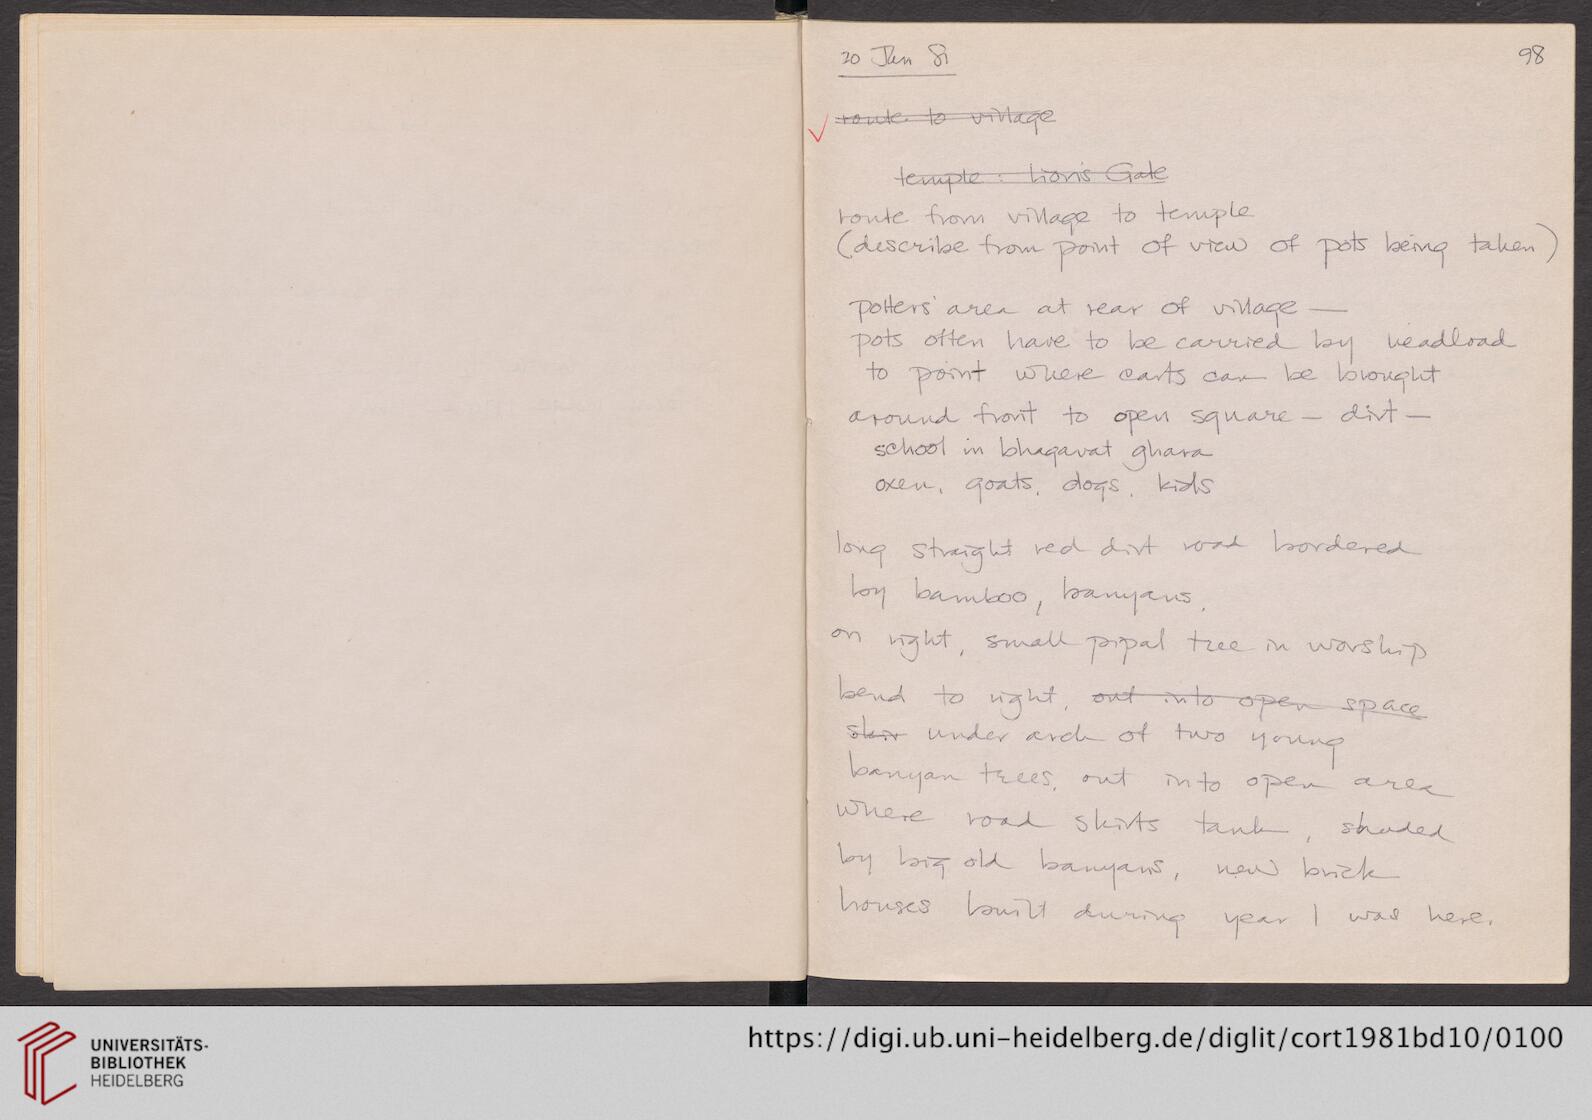 20 Jan 81
98
route to village
temple: Lion's Gate
route from village to temple
(describe from point of view of pots being taken)
potters' area at rear of village —
pots often have to be carried by headload
to point where carts can be brought
around front to open square — dirt —
school in bhagavat ghara
oxen, goats, dogs, kids
long straight red dirt road bordered
by bamboo, banyans,
on right, small pipal tree in worship
bend to right, out into open space
skir under arch of two young
banyan trees, out into open area
where road skirts tank, shaded
by big old banyans, new brick
houses built during year I was here.
UNIVERSITÄTS-
BIBLIOTHEK
HEIDELBERG
https://digi.ub.uni-heidelberg.de/diglit/cort1981bd10/0100